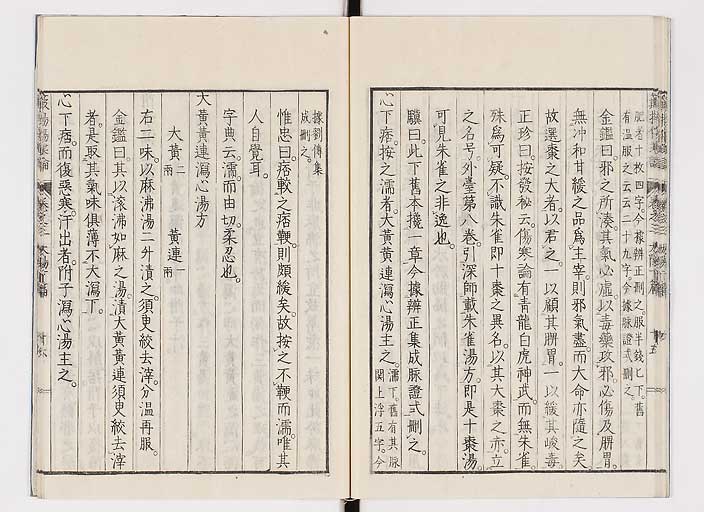 肥者十枚四字今據辨正刪之服半錢匕下舊
有溫服之云云二十九字今據脉證式刪之
金鑑曰邪之所湊其氣必虛以毒藥攻邪必傷及脾胃
無冲和甘緩之品爲主宰則邪氣盡而大命亦隨之矣
故選棗之大者以君之一以顧其脾胃一以緩其峻毒
正珍曰按發秘云傷寒論有青龍白虎神武而無朱雀
殊爲可疑不識朱雀即十棗之異名以其大棗之亦立
之名号外臺第八卷引深師載朱雀湯方即是十棗湯
可見朱雀之非逸也
驥曰此下舊本攙一章今據辨正集成脉證式刪之
心下痞按之濡者大黃黃連瀉心湯主之濡下舊有其脉
關上浮五字今
據劉傳集
成刪之
惟忠曰痞較之痞鞕則頗緩矣故按之不鞕而濡唯其
人自覺耳
字典云濡而由切柔忍也
大黃黃連瀉心湯方
大黃二兩 黃連一兩
右二味以麻沸湯二升漬之須臾絞去滓分溫再服
金鑑曰其以滾沸如麻之湯漬大黃黃連須臾絞去滓
者是取其氣味俱薄不大瀉下
心下痞而復惡寒汗出者附子瀉心湯主之